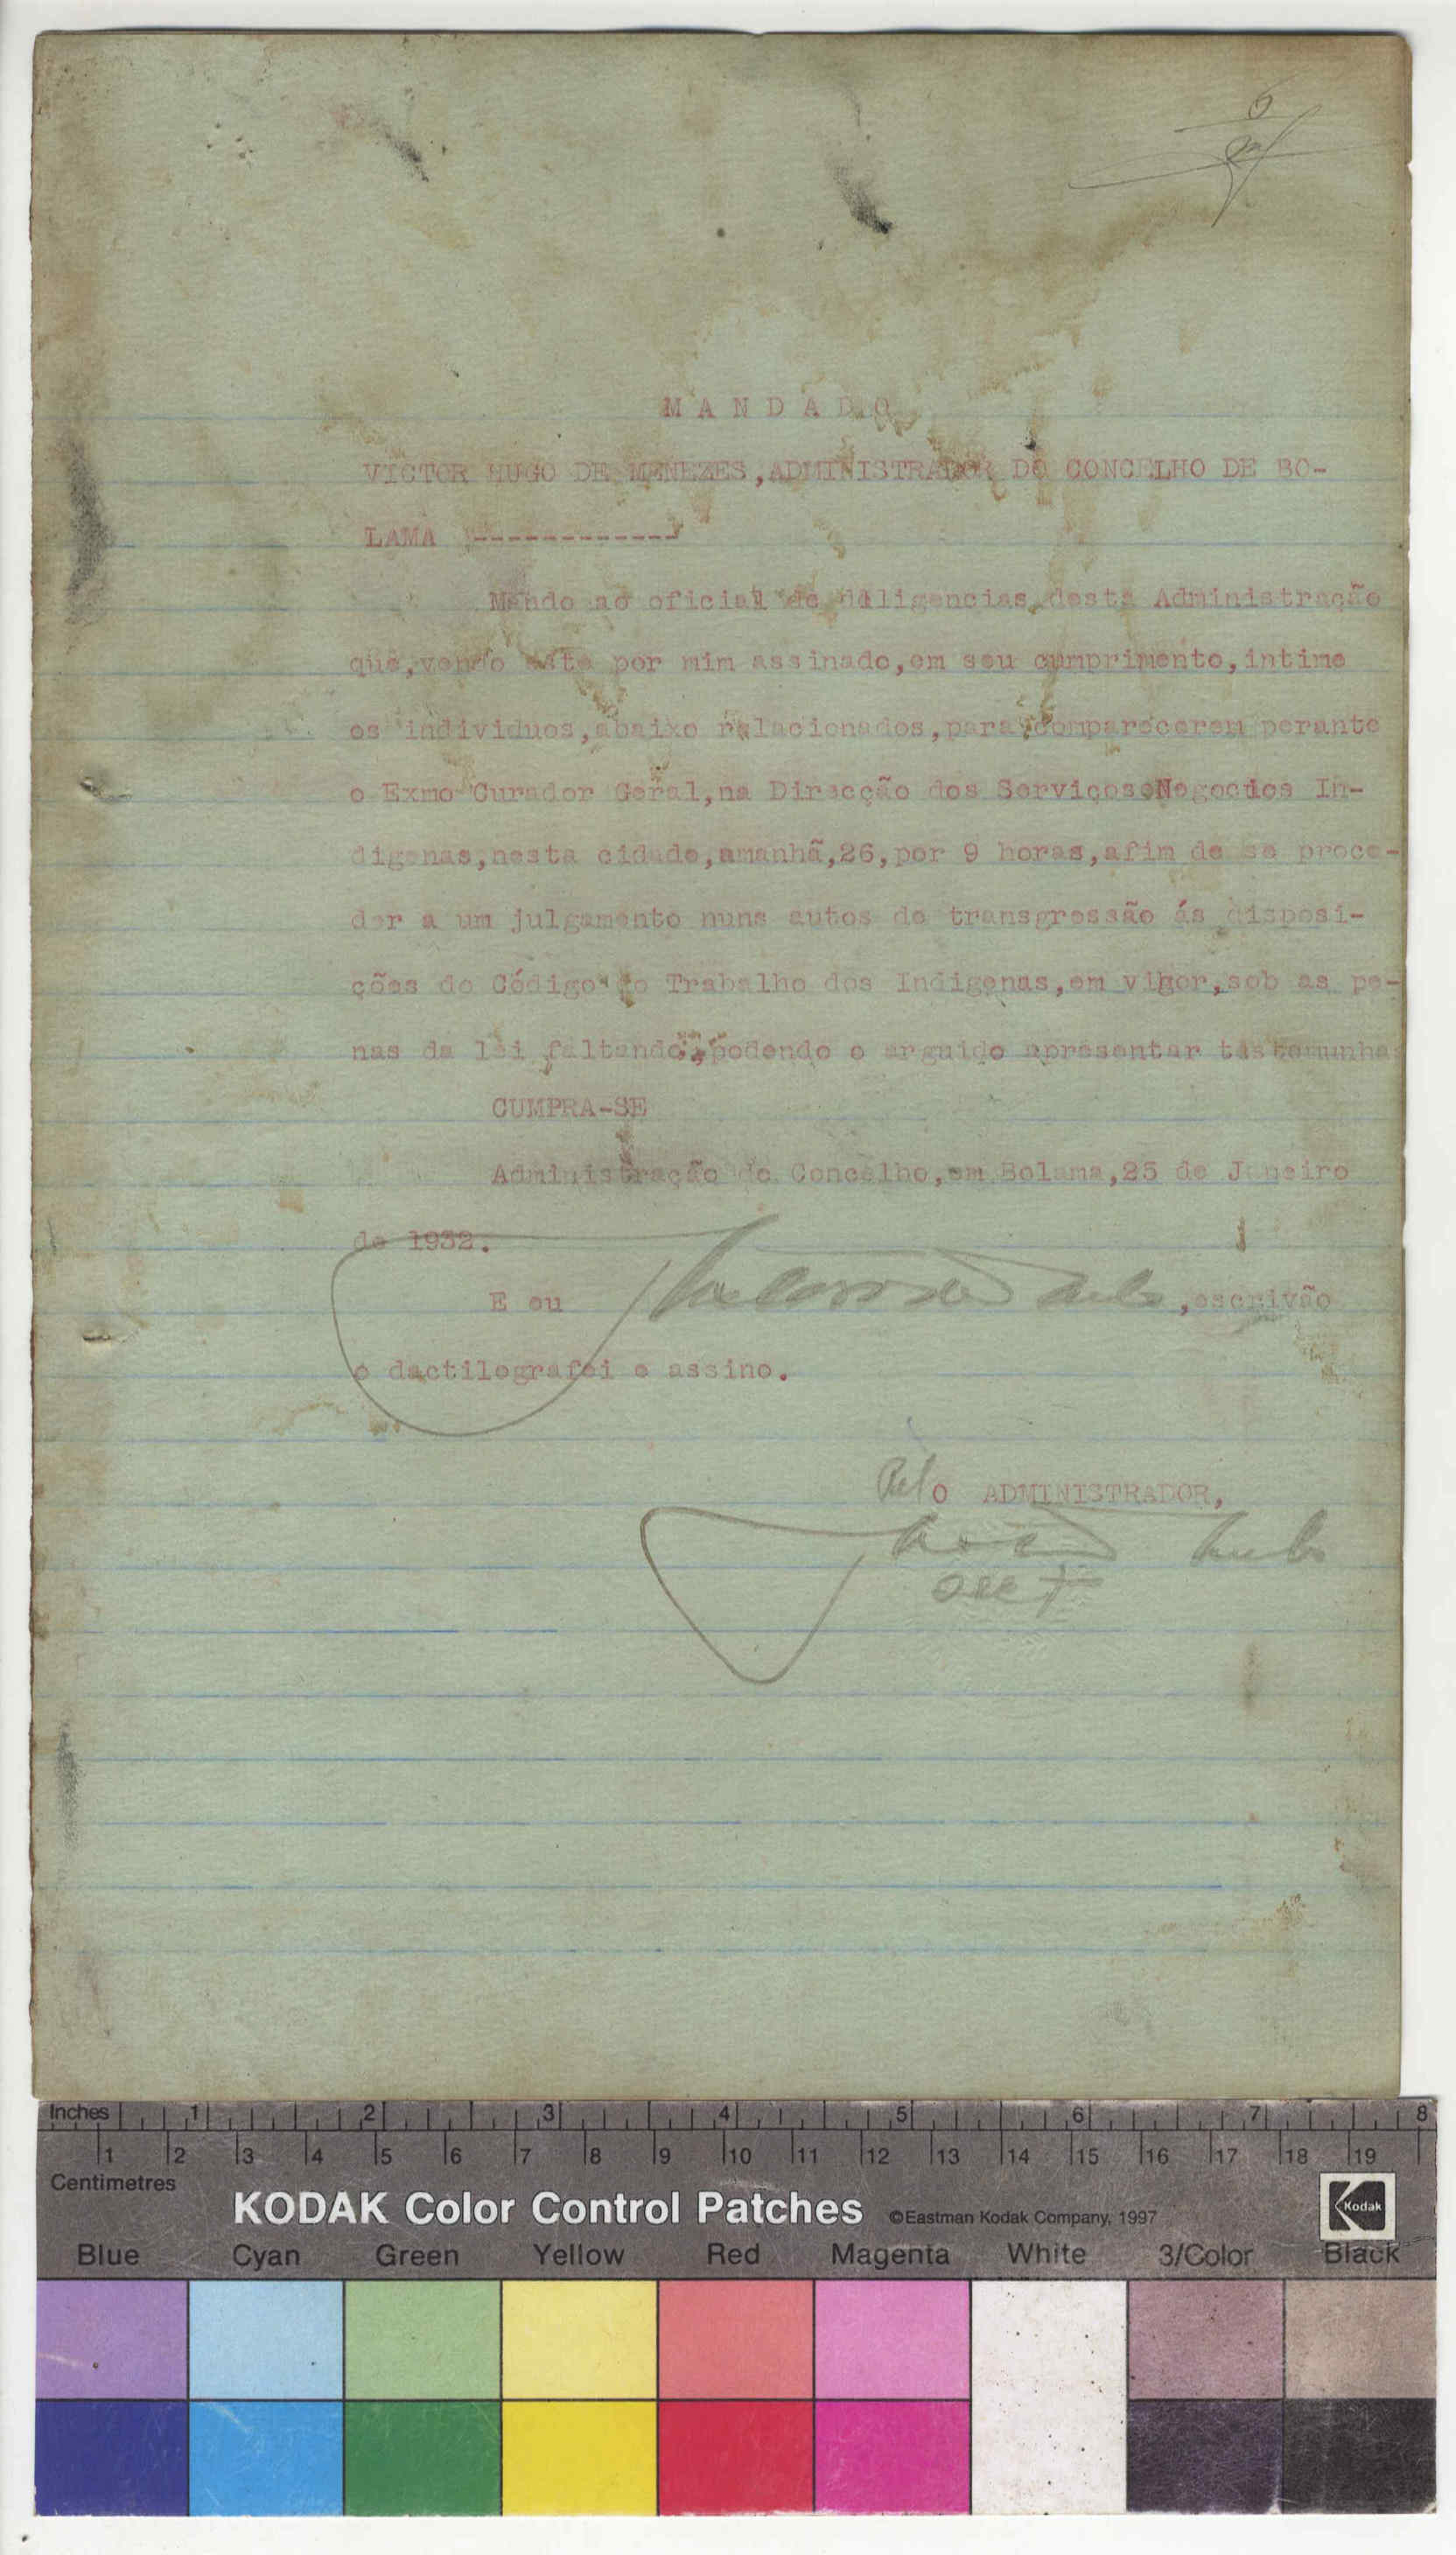 6
M A N D A D O
VICTOR HUGO DE MENEZES,ADMINISTRADOR DO CONCELHO DE BO-
LAMA -------------
Mando ao oficial de diligencias desta Administração
que,vendo este por mim assinado,em seu cumprimento,intime
os individuos,abaixo relacionados,para comparecerem perante
o Exmo Curador Geral,na Direcção dos Serviços e Negocios In-
digenas,nesta cidade,amanhã,26,por 9 horas,afim de se proce-
der a um julgamento nuns autos de transgressão ás disposi-
ções do Código do Trabalho dos Indigenas,em vigor,sob as pe-
nas da lei faltando,podendo o arguido apresentar testemunhas
CUMPRA-SE
Administração do Concelho,em Bolama,25 de Janeiro
de 1932.
E eu ,escrivão
o dactilografei e assino.
Pelo ADMINISTRADOR,
Inches 1 2 3 4 5 6 7 8
1 2 3 4 5 6 7 8 9 10 11 12 13 14 15 16 17 18 19
Centimetres
KODAK Color Control Patches ©Eastman Kodak Company, 1997 Kodak
Blue Cyan Green Yellow Red Magenta White 3/Color Black